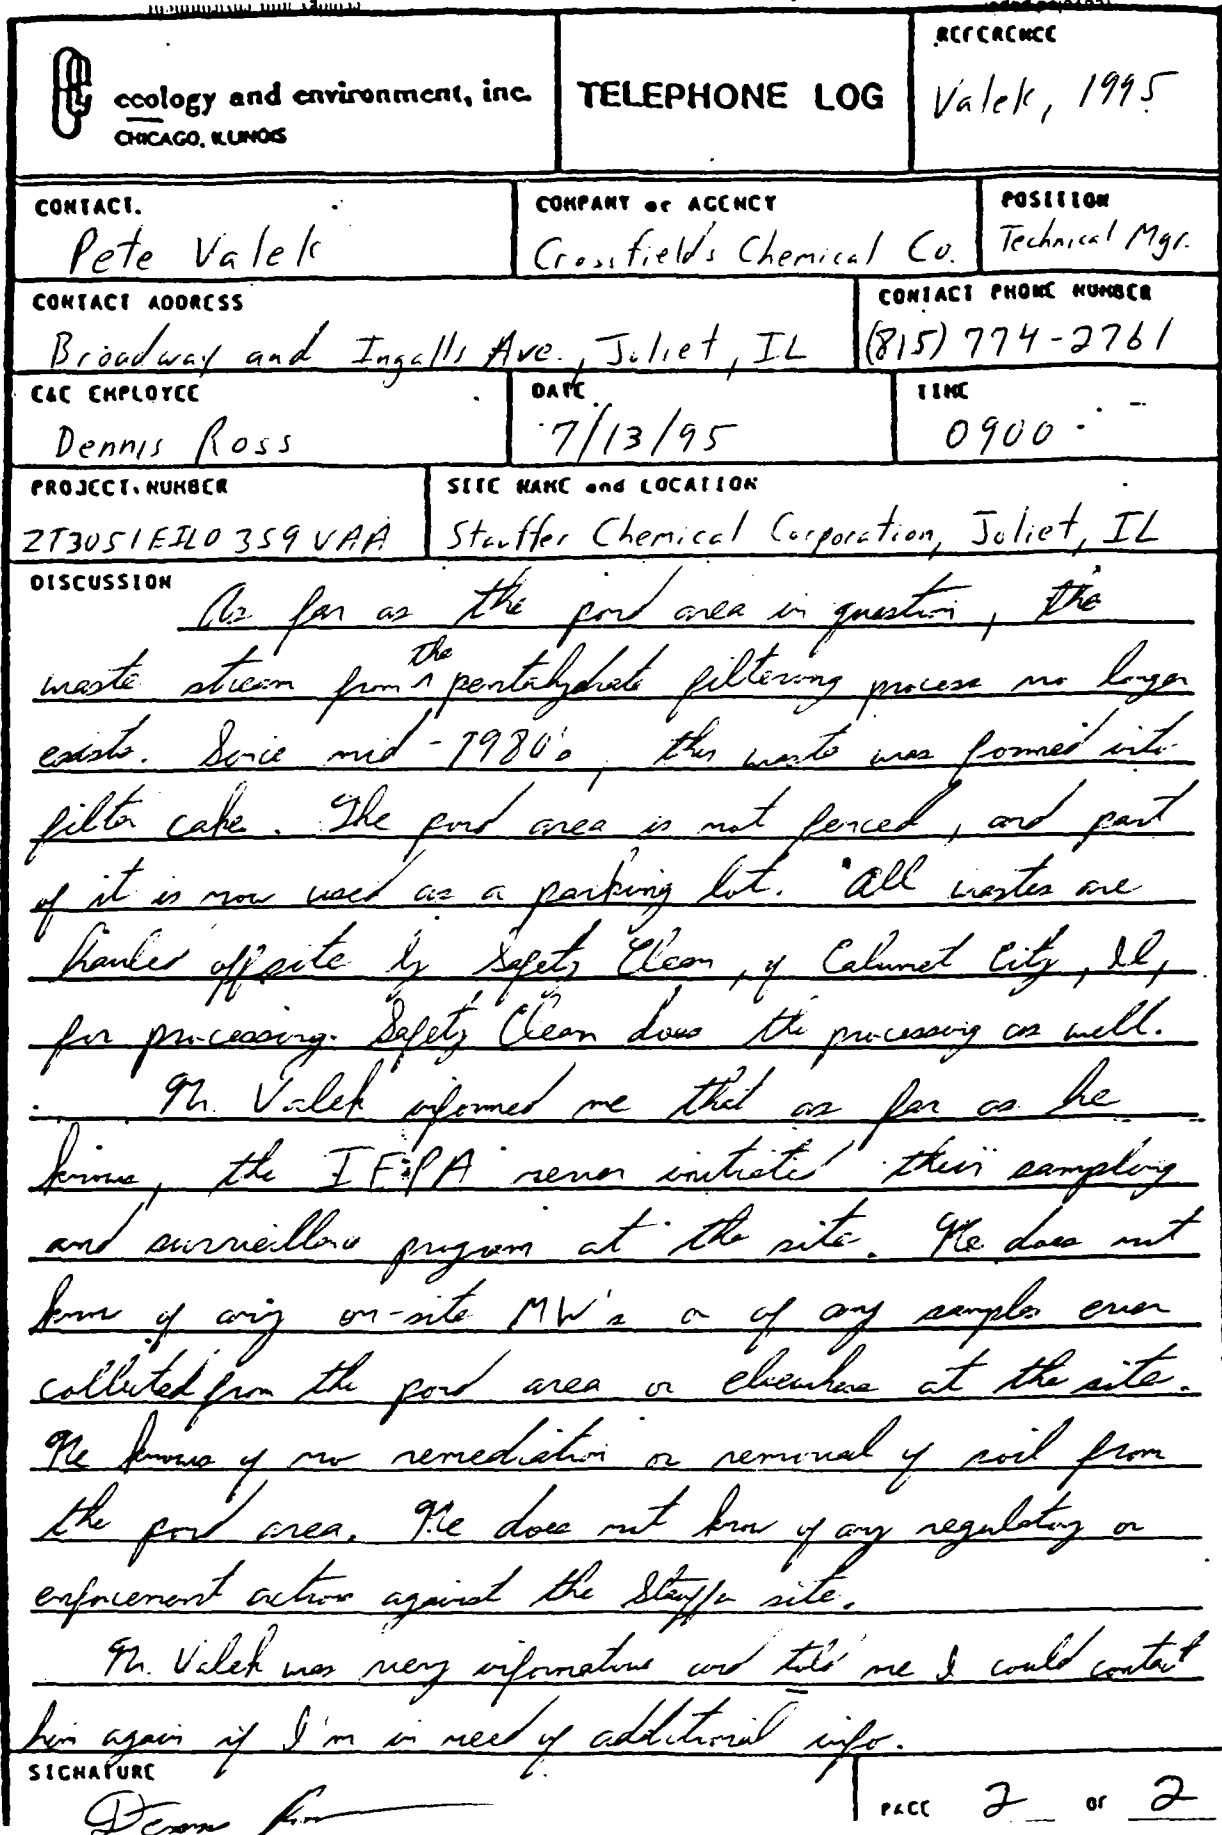 REFERENCE
Valek, 1995
ecology and environment, inc.
CHICAGO, ILLINOIS
TELEPHONE LOG
CONTACT.
Pete Valek
COMPANY or AGENCY
Crossfield's Chemical Co.
POSITION
Technical Mgr.
CONTACT ADDRESS
Broadway and Ingalls Ave., Joliet, IL
CONTACT PHONE NUMBER
(815) 774-2761
E&E EMPLOYEE
Dennis Ross
DATE
7/13/95
TIME
0900
PROJECT NUMBER
ZT3051EIL0359VAA
SITE NAME and LOCATION
Stauffer Chemical Corporation, Joliet, IL
DISCUSSION
As far as the pond area in question, the
waste stream from ^the pentahydrate filtering process no longer
exists. Since mid-1980's, this waste was formed into
filter cake. The pond area is not fenced, and part
of it is now used as a parking lot. All wastes are
hauled offsite by Safety Clean, of Calumet City, Il,
for processing. Safety Clean does the processing as well.
Mr. Valek informed me that as far as he
knows, the IEPA never initiated their sampling
and surveillance program at the site. He does not
know of any on-site MW's or of any samples ever
collected from the pond area or elsewhere at the site.
He knows of no remediation or removal of soil from
the pond area. He does not know of any regulatory or
enforcement actions against the Stauffer site.
Mr. Valek was very informative and told me I could contact
him again if I'm in need of additional info.
SIGNATURE
PAGE 2 of 2